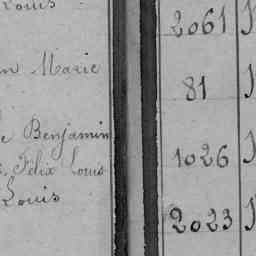 Louis
2061
Marie
81
Benjamin
1026
Félix Louis
Louis
2023